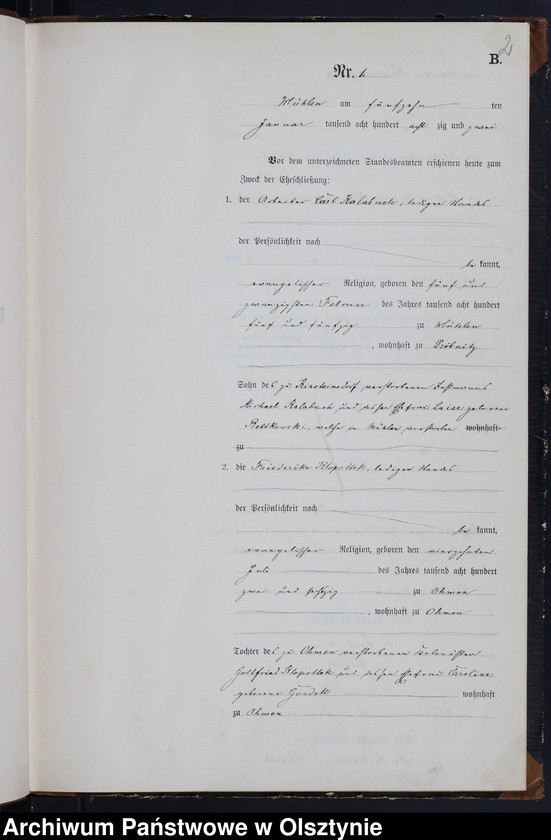 2
B.
Nr. 1.
Mühlen am fünfzehn ten
Januar tausend acht hundert acht zig und zwei
Vor dem unterzeichneten Standesbeamten erschienen heute zum
Zweck der Eheschließung:
1. der Arbeiter Carl Kalabuch, ledigen Standes
der Persönlichkeit nach
be kannt,
evangelischer Religion, geboren den fünf und
zwanzigsten Februar des Jahres tausend acht hundert
fünf und fünfzig zu Mühlen
, wohnhaft zu Dröbnitz
Sohn des zu verstorbenen
Michael Kalabuch und dessen Ehefrau Luise geborene
welche in Mühlen verstorben wohnhaft
zu
2. die Friederike Klopottek, ledigen Standes
der Persönlichkeit nach
be kannt,
evangelischer Religion, geboren den vierzehnten
Juli des Jahres tausend acht hundert
zwei und sechszig zu Ohmen
, wohnhaft zu Ohmen
Tochter des zu Ohmen verstorbenen
Gottfried Klopottek und dessen Ehefrau Caroline
geborene wohnhaft
zu Ohmen
Archiwum Państwowe w Olsztynie